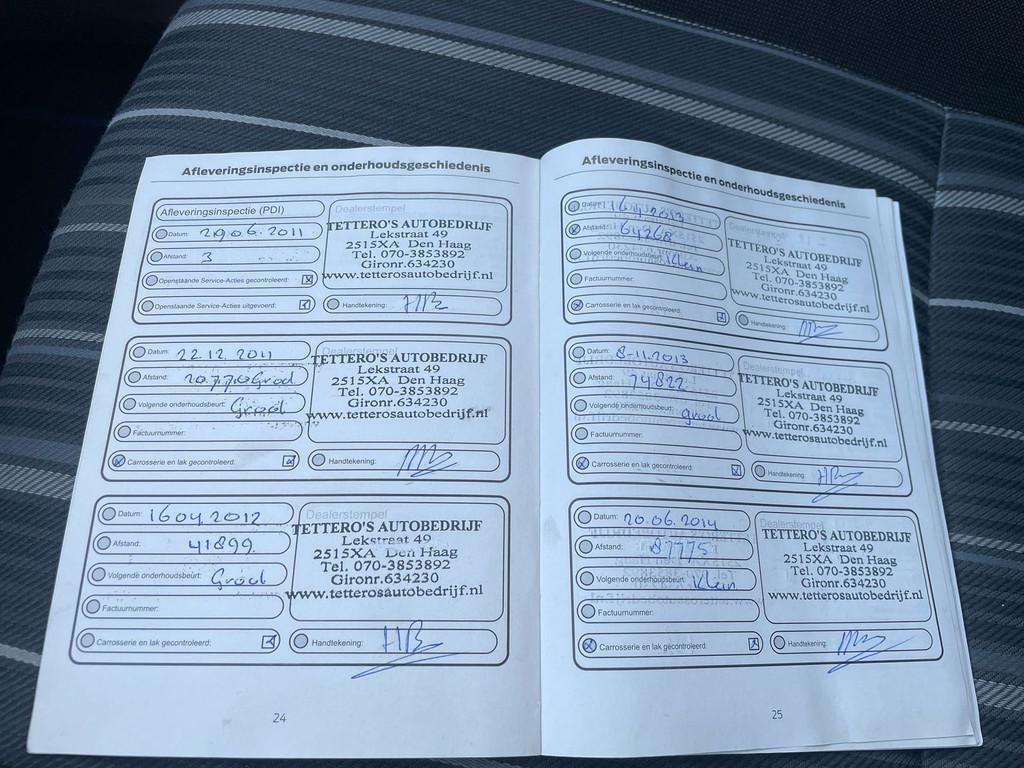 Afleveringsinspectie en onderhoudsgeschiedenis
Afleveringsinspectie (PDI)
Datum: 29.06.2011
Afstand: 3
Openstaande Service-Acties gecontroleerd:
Openstaande Service-Acties uitgevoerd:
Dealerstempel
TETTERO'S AUTOBEDRIJF
Lekstraat 49
2515XA Den Haag
Tel. 070-3853892
Gironr.634230
www.tetterosautobedrijf.nl
Handtekening:
Datum: 22.12.2011
Afstand:
Volgende onderhoudsbeurt: Groot
Factuurnummer:
Carrosserie en lak gecontroleerd:
Dealerstempel
TETTERO'S AUTOBEDRIJF
Lekstraat 49
2515XA Den Haag
Tel. 070-3853892
Gironr.634230
www.tetterosautobedrijf.nl
Handtekening:
Datum: 16.04.2012
Afstand: 41899.
Volgende onderhoudsbeurt: Groot
Factuurnummer:
Carrosserie en lak gecontroleerd:
Dealerstempel
TETTERO'S AUTOBEDRIJF
Lekstraat 49
2515XA Den Haag
Tel. 070-3853892
Gironr.634230
www.tetterosautobedrijf.nl
Handtekening:
24
Afleveringsinspectie en onderhoudsgeschiedenis
Datum: 16.4.2013
Afstand: 64268
Volgende onderhoudsbeurt: Klein
Factuurnummer:
Carrosserie en lak gecontroleerd:
Dealerstempel
TETTERO'S AUTOBEDRIJF
Lekstraat 49
2515XA Den Haag
Tel. 070-3853892
Gironr.634230
www.tetterosautobedrijf.nl
Handtekening:
Datum: 8-11.2013
Afstand: 74822
Volgende onderhoudsbeurt: groot
Factuurnummer:
Carrosserie en lak gecontroleerd:
Dealerstempel
TETTERO'S AUTOBEDRIJF
Lekstraat 49
2515XA Den Haag
Tel. 070-3853892
Gironr.634230
www.tetterosautobedrijf.nl
Handtekening:
Datum: 20.06.2014
Afstand: 87775
Volgende onderhoudsbeurt: Klein
Factuurnummer:
Carrosserie en lak gecontroleerd:
Dealerstempel
TETTERO'S AUTOBEDRIJF
Lekstraat 49
2515XA Den Haag
Tel. 070-3853892
Gironr.634230
www.tetterosautobedrijf.nl
Handtekening:
25